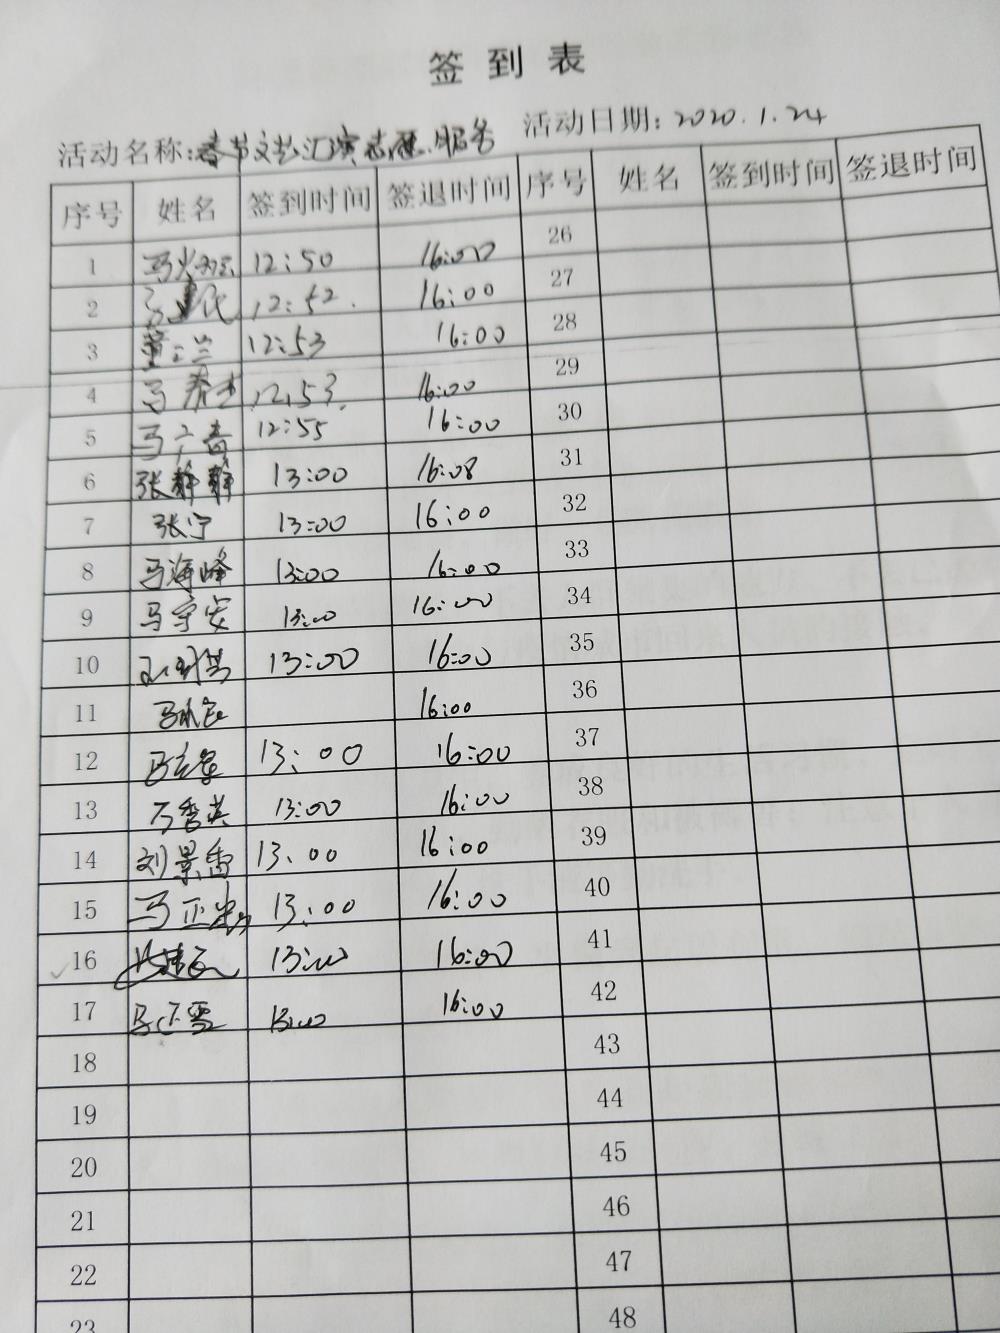 签到表
活动名称:春节文艺汇演志愿服务 活动日期:2020.1.24
序号 姓名 签到时间 签退时间 序号 姓名 签到时间 签退时间
1 12:50 16:00 26
2 12:52. 16:00 27
3 董兰 12:53 16:00 28
4 马 12:53. 16:00 29
5 马广音 12:55 16:00 30
6 张静静 13:00 16:08 31
7 张宁 13:00 16:00 32
8 马海峰 13:00 16:00 33
9 马守安 13:00 16:00 34
10 13:00 16:00 35
11 16:00 36
12 13:00 16:00 37
13 13:00 16:00 38
14 刘景雷 13:00 16:00 39
15 马正 13:00 16:00 40
16 13:00 16:00 41
17 马正雪 13:00 16:00 42
18 43
19 44
20 45
21 46
22 47
23 48